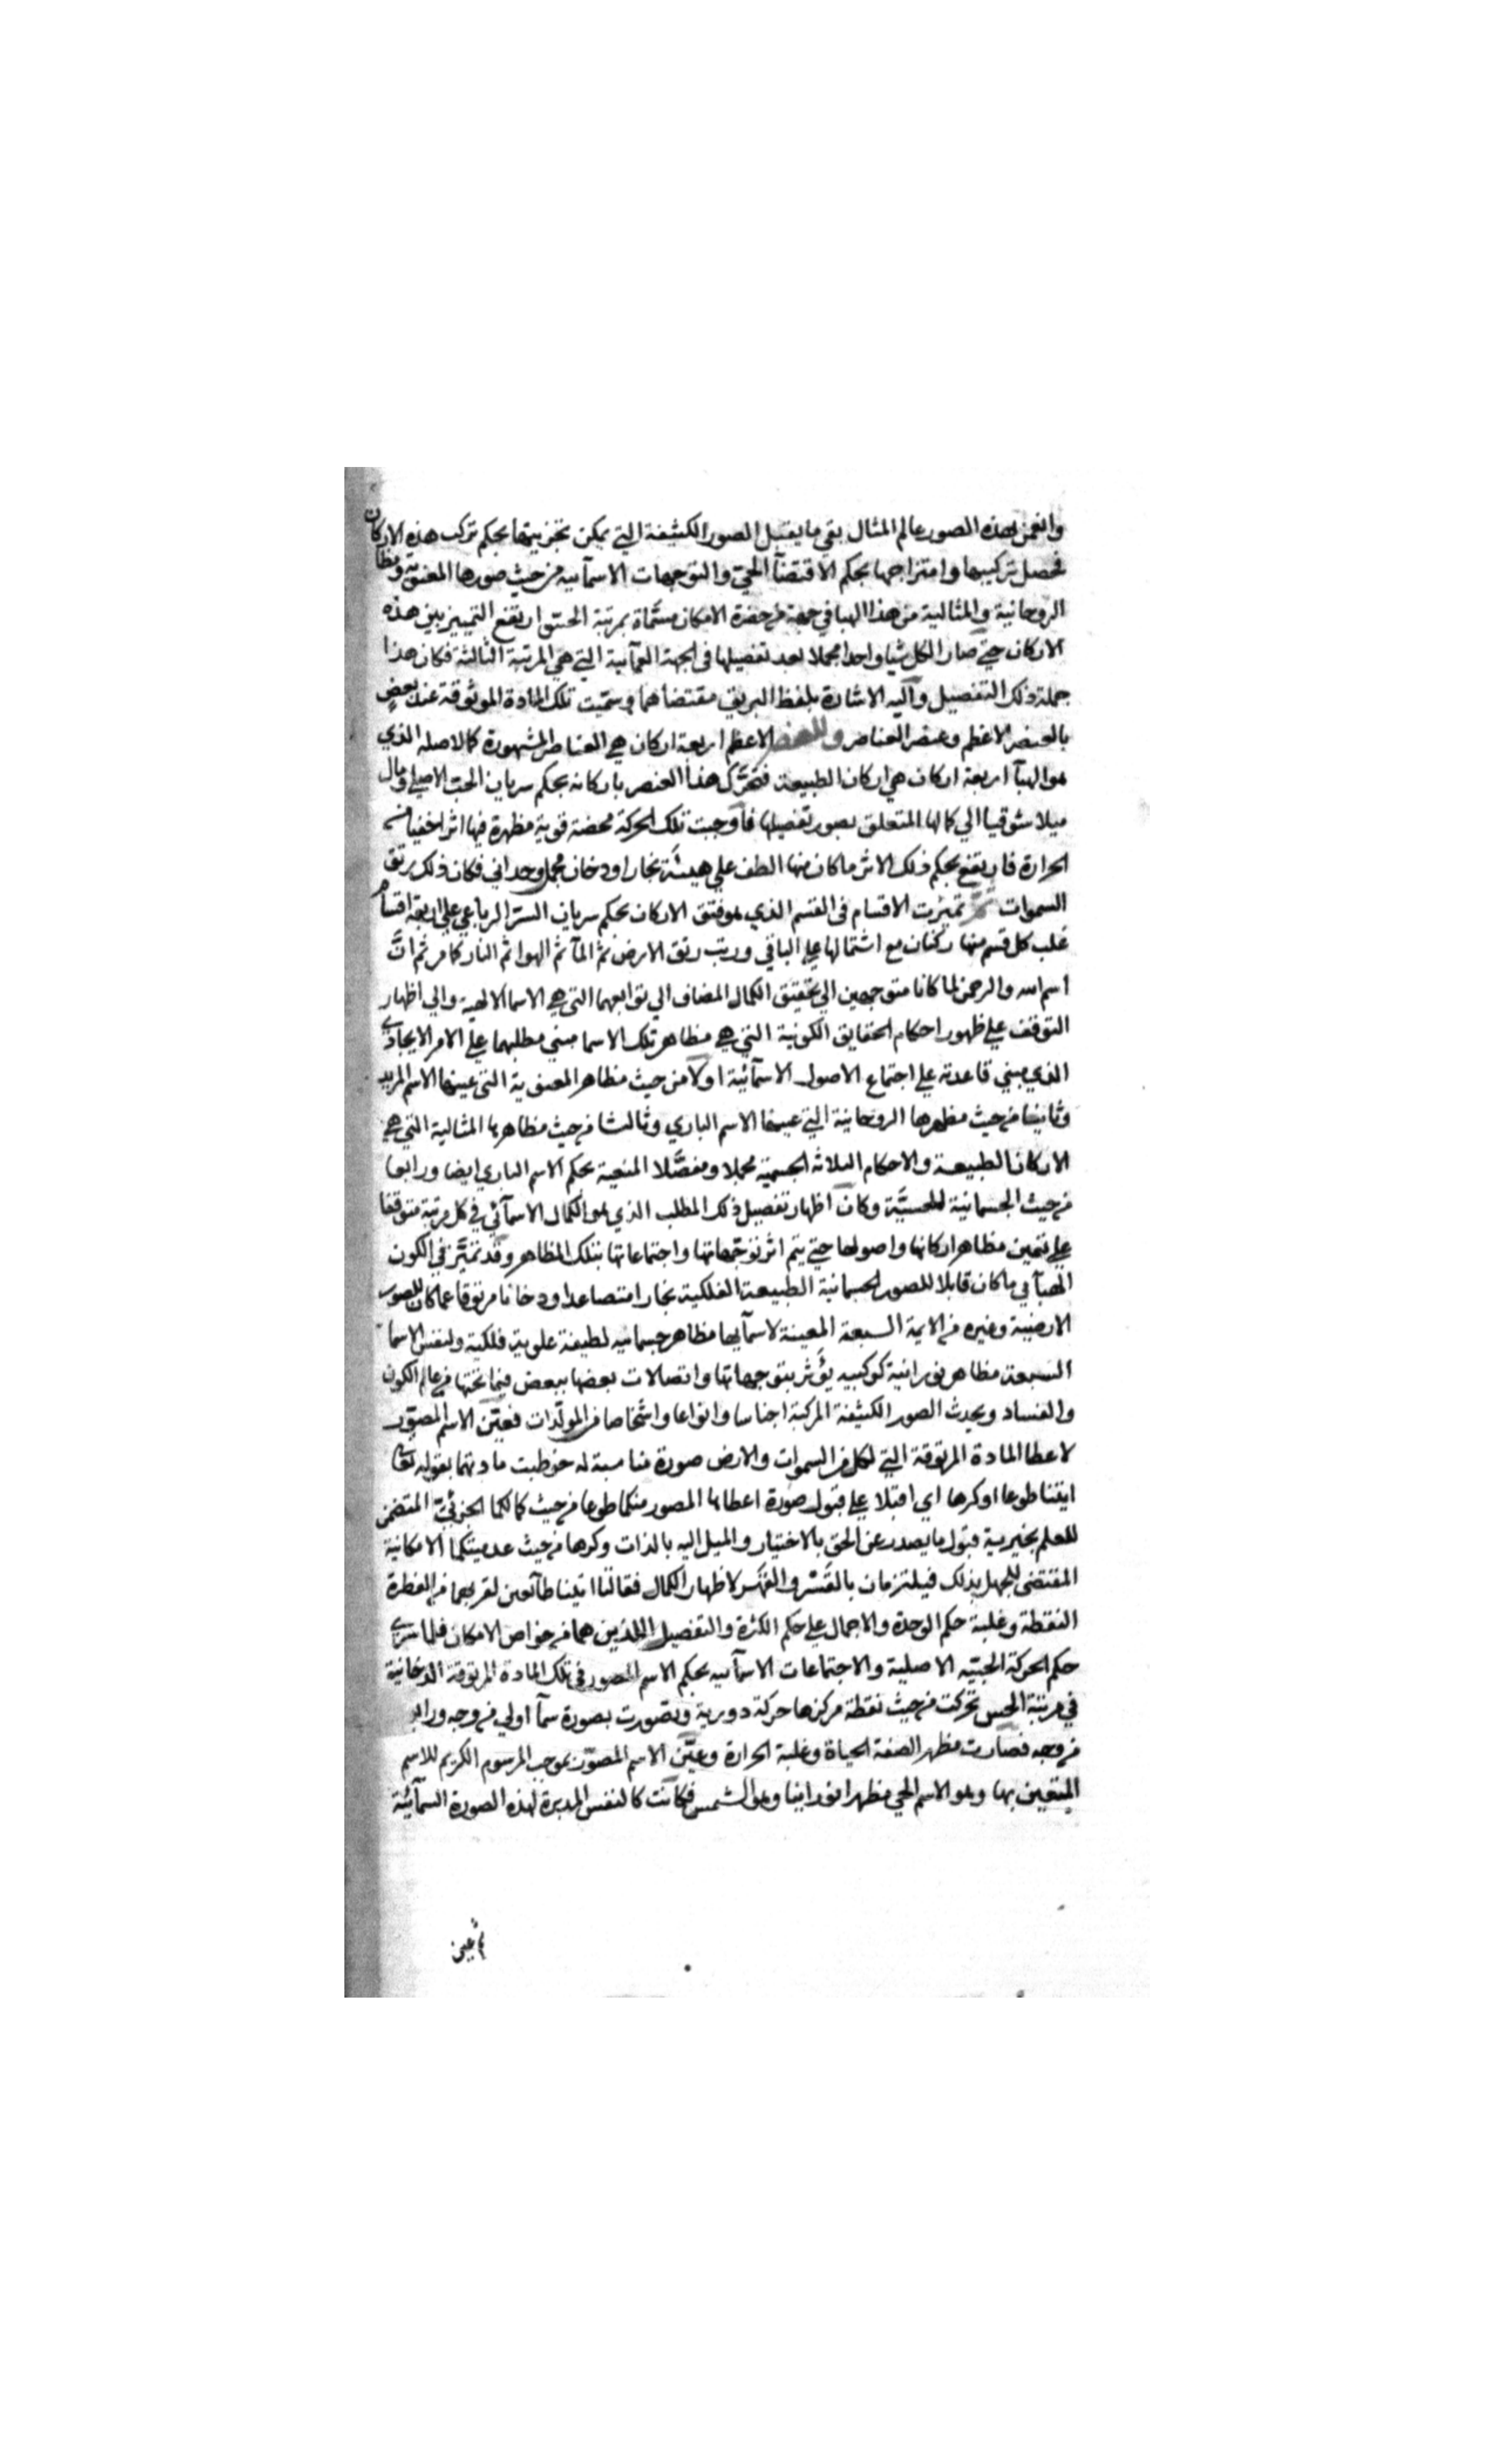 وانغمر بهذه الصور عالم المثال بقي ما يقبل الصور الكثيفة التي يمكن تجزيتها بحكم تركب هذه الاركان
فحصل تركيبها وامتزاجها بحكم الاقتضآ الحبي والتوجهات الاسمآئيه من حيث صورها المعنوية ومظا
الروحانية والمثالية من هذا الهبا في جهة من حضرة الامكان مسماة بمرتبة الحس وارتفع التمييز بين هذه
الاركان حتي صار الكل شيا واحدا مجملا بعد تفصيلها في الجهة العمآئية التي هي المرتبة الثالثة فكان هذا
جملة ذلك التفصيل واليه الاشارة بلفظ الرتق مقتضاهما وسميت تلك المادة المرتوقة عند بعض
بالعنصر الاعظم وعنصر العناصر وللعنصر الاعظم اربعة اركان هي العناصر المشهورة كما لاصله الذي
هو الهبآ اربعة اركان هي اركان الطبيعة فتحرك هذا العنصر باركانه بحكم سريان الحب الاصلي ومال
ميلا شوقيا الي كمالها المتعلق بصور تفصيلها فاوجبت تلك الحركة مخضة قوية مظهرة فيها اثرا خفيا من
الحرارة فارتفع بحكم ذلك الاثر ما كان منها الطف علي هيئة بخار او دخان مجمل وحداني فكان ذلك رتق
السموات ثم تميزت الاقسام في القسم الذي هو فتق الاركان بحكم سريان السر الرباعي علي اربعة اقسام
غلب كل قسم منها ركنان مع اشتمالها علي الباقي ورتب رتق الارض ثم المآ ثم الهوا ثم النار كما مر ثم ان
اسم الله والرحمن لما كانا متوجهين الي تحقيق الكمال المضاف الي توابعهما التي هي الاسما الالهية والي اظهار
التوقف علي ظهور احكام الحقايق الكونية التي هي مظاهر تلك الاسما مبني مطلبهما علي الامر الايجادي
الذي مبني قاعدته علي اجتماع الاصول الاسمآئية اولا من حيث مظاهر المعنوية التي عينها الاسم المريد
وثانيا من حيث مظهرها الروحانية التي عينها الاسم الباري وثالثا من حيث مظاهرها المثالية التي هي
الاركان الطبيعة والاحكام الثلاثة الجسمية مجملا ومفصلا المنعية بحكم الاسم الباري ايضا ورابعا
من حيث الجسمانية الحسية وكان اظهار تفصيل ذلك المطلب الذي هو الكمال الاسمآئي في كل مرتبة متوقفا
علي تعين مظاهر اركانها واصولها حتي يتم اثر توجهاتها واجتماعاتها بتلك المظاهر وقد تميز في الكون
الهبآئي ما كان قابلا للصور الجسمانية الطبيعة الفلكية بخارا متصاعدا ودخانا مرتوقا عما كان للصور
الارضية وغيره من الايمة السبعة المعينة لاسمآيها مظاهر جسمانيه لطيفة علوية فلكية ولنفس الاسما
السبعة مظاهر نورانية كوكبيه يؤثر بتوجهاتها واتصالات بعضها ببعض فيما تحتها من عالم الكون
والفساد ويحدث الصور الكثيفة المركبة اجناسا وانواعا واشخاصا من المولدات فعين الاسم المصور
لاعطا المادة المرتوقة التي لكل من السموات والارض صورة مناسبة له خوطبت مادتهما بقوله تعالي
ايتيا طوعا او كرها اي اقبلا علي قبول صورة اعطاها المصور منكما طوعا من حيث كمالكما الجزئي المتضمن
للعلم بخيرية قبول ما يصدر عن الحق بالاختيار والميل اليه بالذات وكرها من حيث عدميتكما الامكانية
المقتضي للجهل بذلك فيلتزمان بالقسر والقهر لاظهار الكمال فقالتا اتينا طآئعين لقربهما من الفطرة
النقطة وغلبة حكم الوحدة والاجمال علي حكم الكثرة والتفصيل اللذين هما من خواص الامكان فلما سري
حكم الحركة الحبيه الاصلية والاجتماعات الاسمآئيه بحكم الاسم المصور في تلك المادة المرتوقة الدخانية
في مرتبة الحس تحركت من حيث نقطة مركزها حركة دورية وتصورت بصورة سمآ اولي من وجه ورابع
من وجه فصارت مظهر الصفة الحياة وغلبة الحرارة وعين الاسم المصور بموجب المرسوم الكريم للاسم
المتعين بها وهو الاسم الحي مظهرا نورانيا وهو الشمس فكانت كالنفس المدبرة لهذه الصورة السمآئية
ثم عين